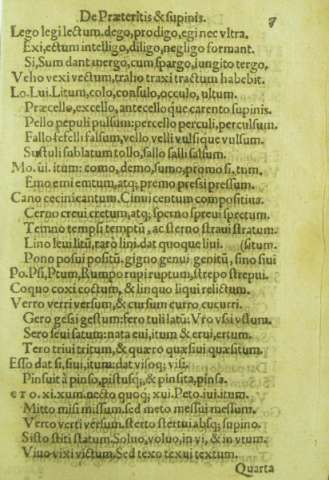 De Præteritis & supinis. 8
Lego legi lectum. dego, prodigo, egi nec vltra.
Exi, ectum intelligo, diligo, negligo formant.
Si, Sum dant mergo, cum spargo, iungito tergo.
Veho vexi vectum, traho traxi tractum habebit.
Lo. Lui. Litum, colo, consulo, occulo, ultum.
Præcello, excello, antecello que carento supinis.
Pello pepuli pulsum: percello perculi, perculsum.
Fallo fefelli falsum, vello velli vulsi que vulsum.
Sustuli sublatum tollo, sallo salli salsum.
Mo. üi. itum: como, demo, sumo, promo si. tum.
Emo emi emtum, atq; premo pressi pressum.
Cano cecini cantum. Cinui centum compositiua.
Cerno creui cretum, atq; sperno spreui spretum.
Temno tempsi temptũ, ac sterno straui stratum.
Lino leui litũ, raro lini. dat quoque liui. (situm.
Pono posui positũ, gigno genui genitũ, sino siui
Po. Psi, Ptum, Rumpo rupi ruptum, strepo strepui.
Coquo coxi coctum, & linquo liqui relictum.
Verro verri versum, & cursum curro cucurri.
Gero gessi gestum: fero tuli latũ: Vro vssi vstum.
Sero seui satum: nata eui, itum & erui, ertum.
Tero triui tritum, & quæro quæsiui quæsitum.
Esso dat si, siui, itum: dat visoq; visi.
Pinsuit à pinso, pistusq;, & pinsita, pinsa.
cto. xi. xum. necto quoq; xui. Peto. iui. itum.
Mitto misi missum. sed meto messui messum.
Verto verti versum. sterto stertui absq; supino.
Sisto stiti statum. Soluo, voluo, in vi, & in vtum.
Viuo vixi victum. Sed texo texui textum.
Quarta